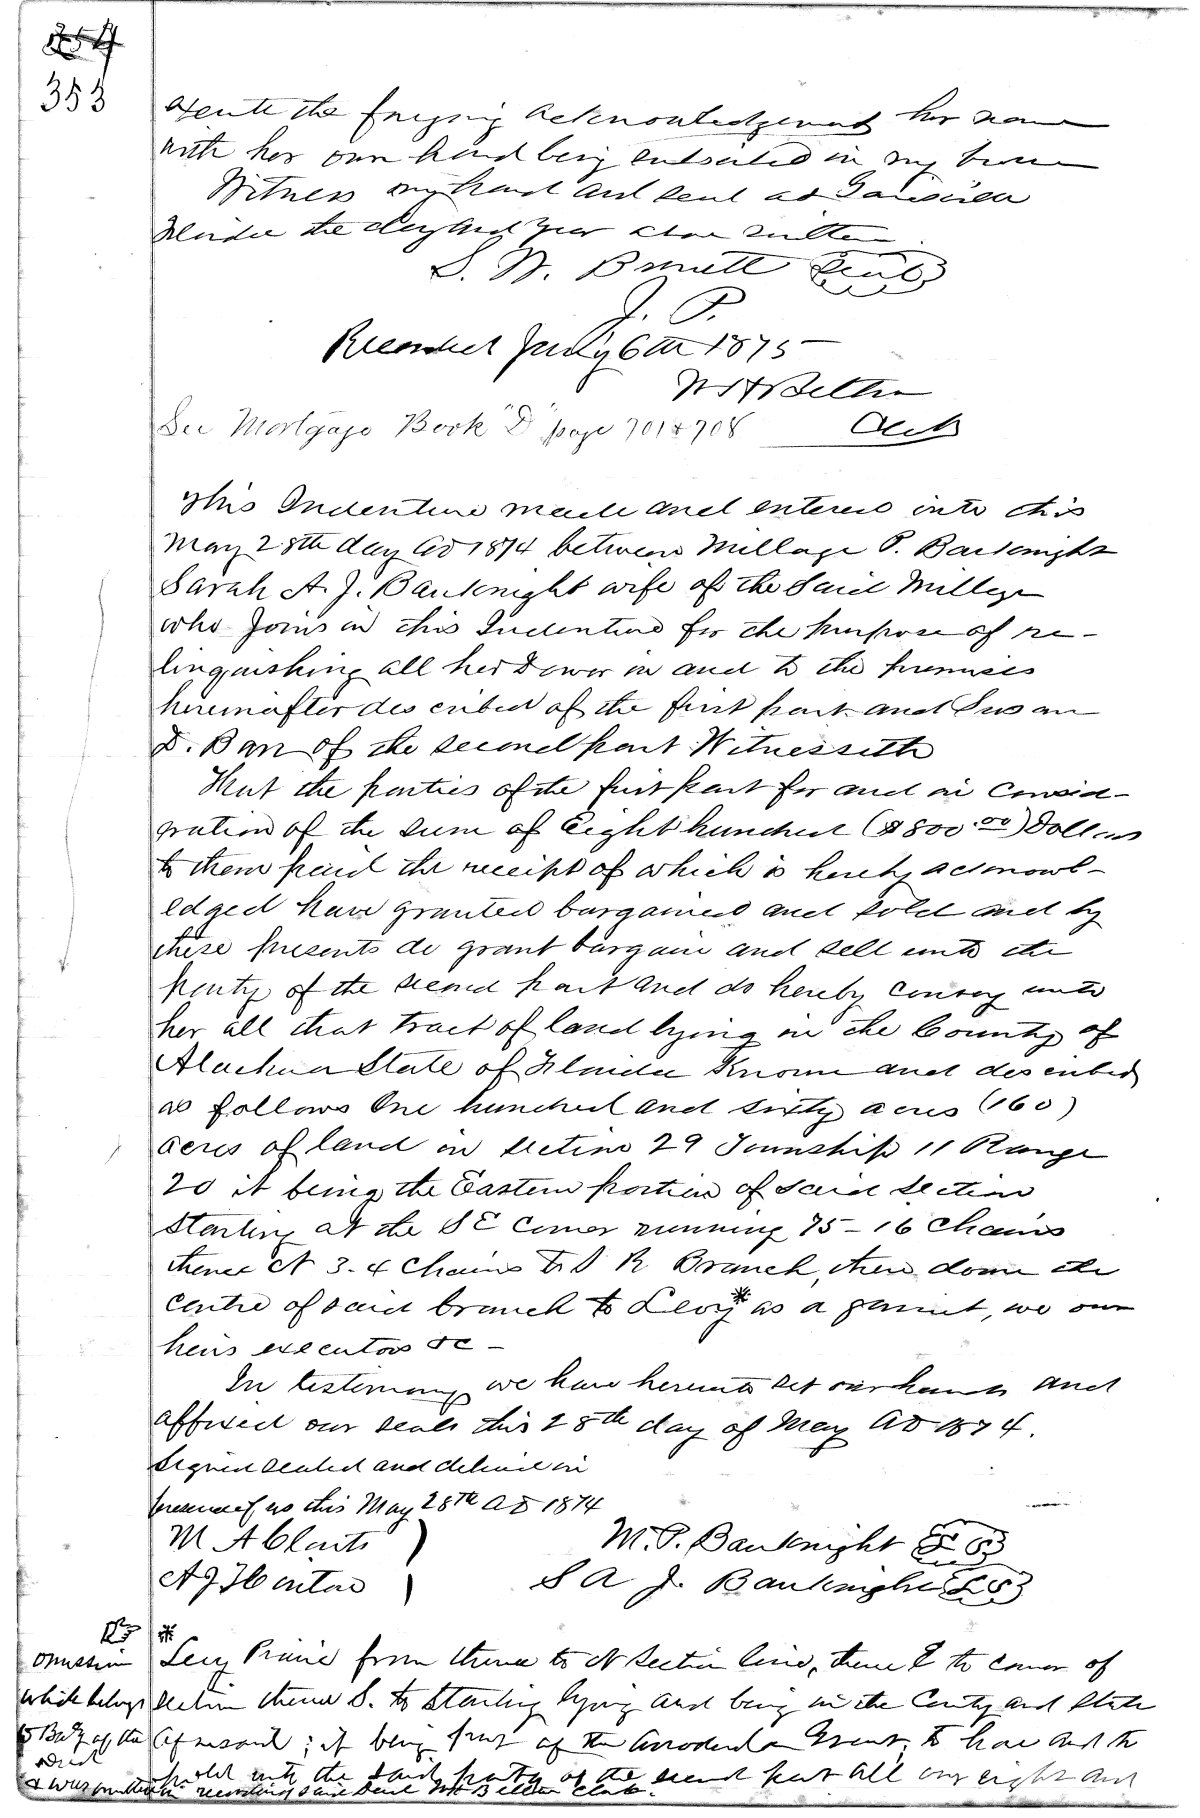 353
execute the foregoing acknowledgement her name
with her own hand being subscribed in my
Witness my hand and seal at Gainesville
Florida the day and year above written.
S. W. Burnett Seal
J. P.
Recorded July 6th 1875
W H Belton
Clerk
See Mortgage Book "D" page 701 & 708
This Indenture made and entered into this
May 28th day AD 1874 between Millage P. Bauknight
Sarah A. J. Bauknight wife of the Said Millage
who Joins in this Indenture for the purpose of re-
linquishing all her Dower in and to the premises
hereinafter described of the first part and Susan
D. Barr of the second part Witnesseth
That the parties of the first part for and in consid-
eration of the sum of Eight hundred ($800.00) Dollars
to them paid the receipt of which is hereby acknowl-
edged have granted bargained and sold and by
these presents do grant bargain and sell unto the
party of the second part and do hereby convey unto
her all that tract of land lying in the County of
Alachua State of Florida Known and described
as follows One hundred and sixty acres (160)
acres of land in section 29 Township 11 Range
20 it being the Eastern portion of said section
starting at the SE corner running 75-16 Chains
thence N 3-4 Chains to S R Branch, then down the
centre of said branch to Levy* as a , we our
heirs executors &c -
In testimony we have hereunto set our hands and
affixed our seals this 28th day of May AD 1874.
Signed sealed and delivered in
presence of us this May 28th AD 1874
M A Clouts
A J Hinton
M. P. Bauknight L S
S A J. Bauknight L S
*
omission
which belongs
to Body of the
Deed
& was omitted in recording said Deed W H Belton Clerk.
Levy Prairie from thence to N Section line, thence E to corner of
section thence S. to starting lying and being in the County and State
aforesaid; it being part of the Arredondo Grant, to have and to
hold unto the said party of the second part all our right and